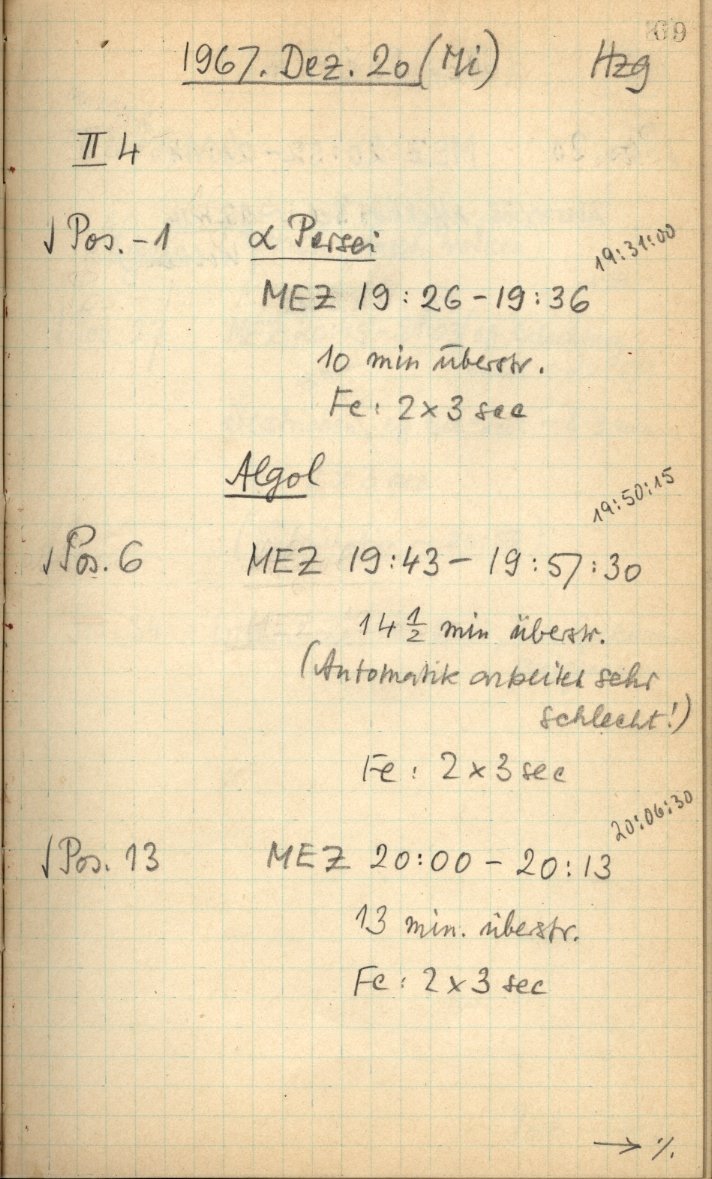 69
1967. Dez. 20 (Mi) Hzg
II 4
√ Pos. -1 α Persei
19:31:00
MEZ 19:26-19:36
10 min überstr.
Fe: 2x3 sec
Algol
19:50:15
√ Pos. 6 MEZ 19:43 - 19:57:30
14 1/2 min überstr.
(Automatik arbeitet sehr
schlecht!)
Fe: 2x3 sec
20:06:30
√ Pos. 13 MEZ 20:00 - 20:13
13 min. überstr.
Fe: 2x3 sec
→ ./.